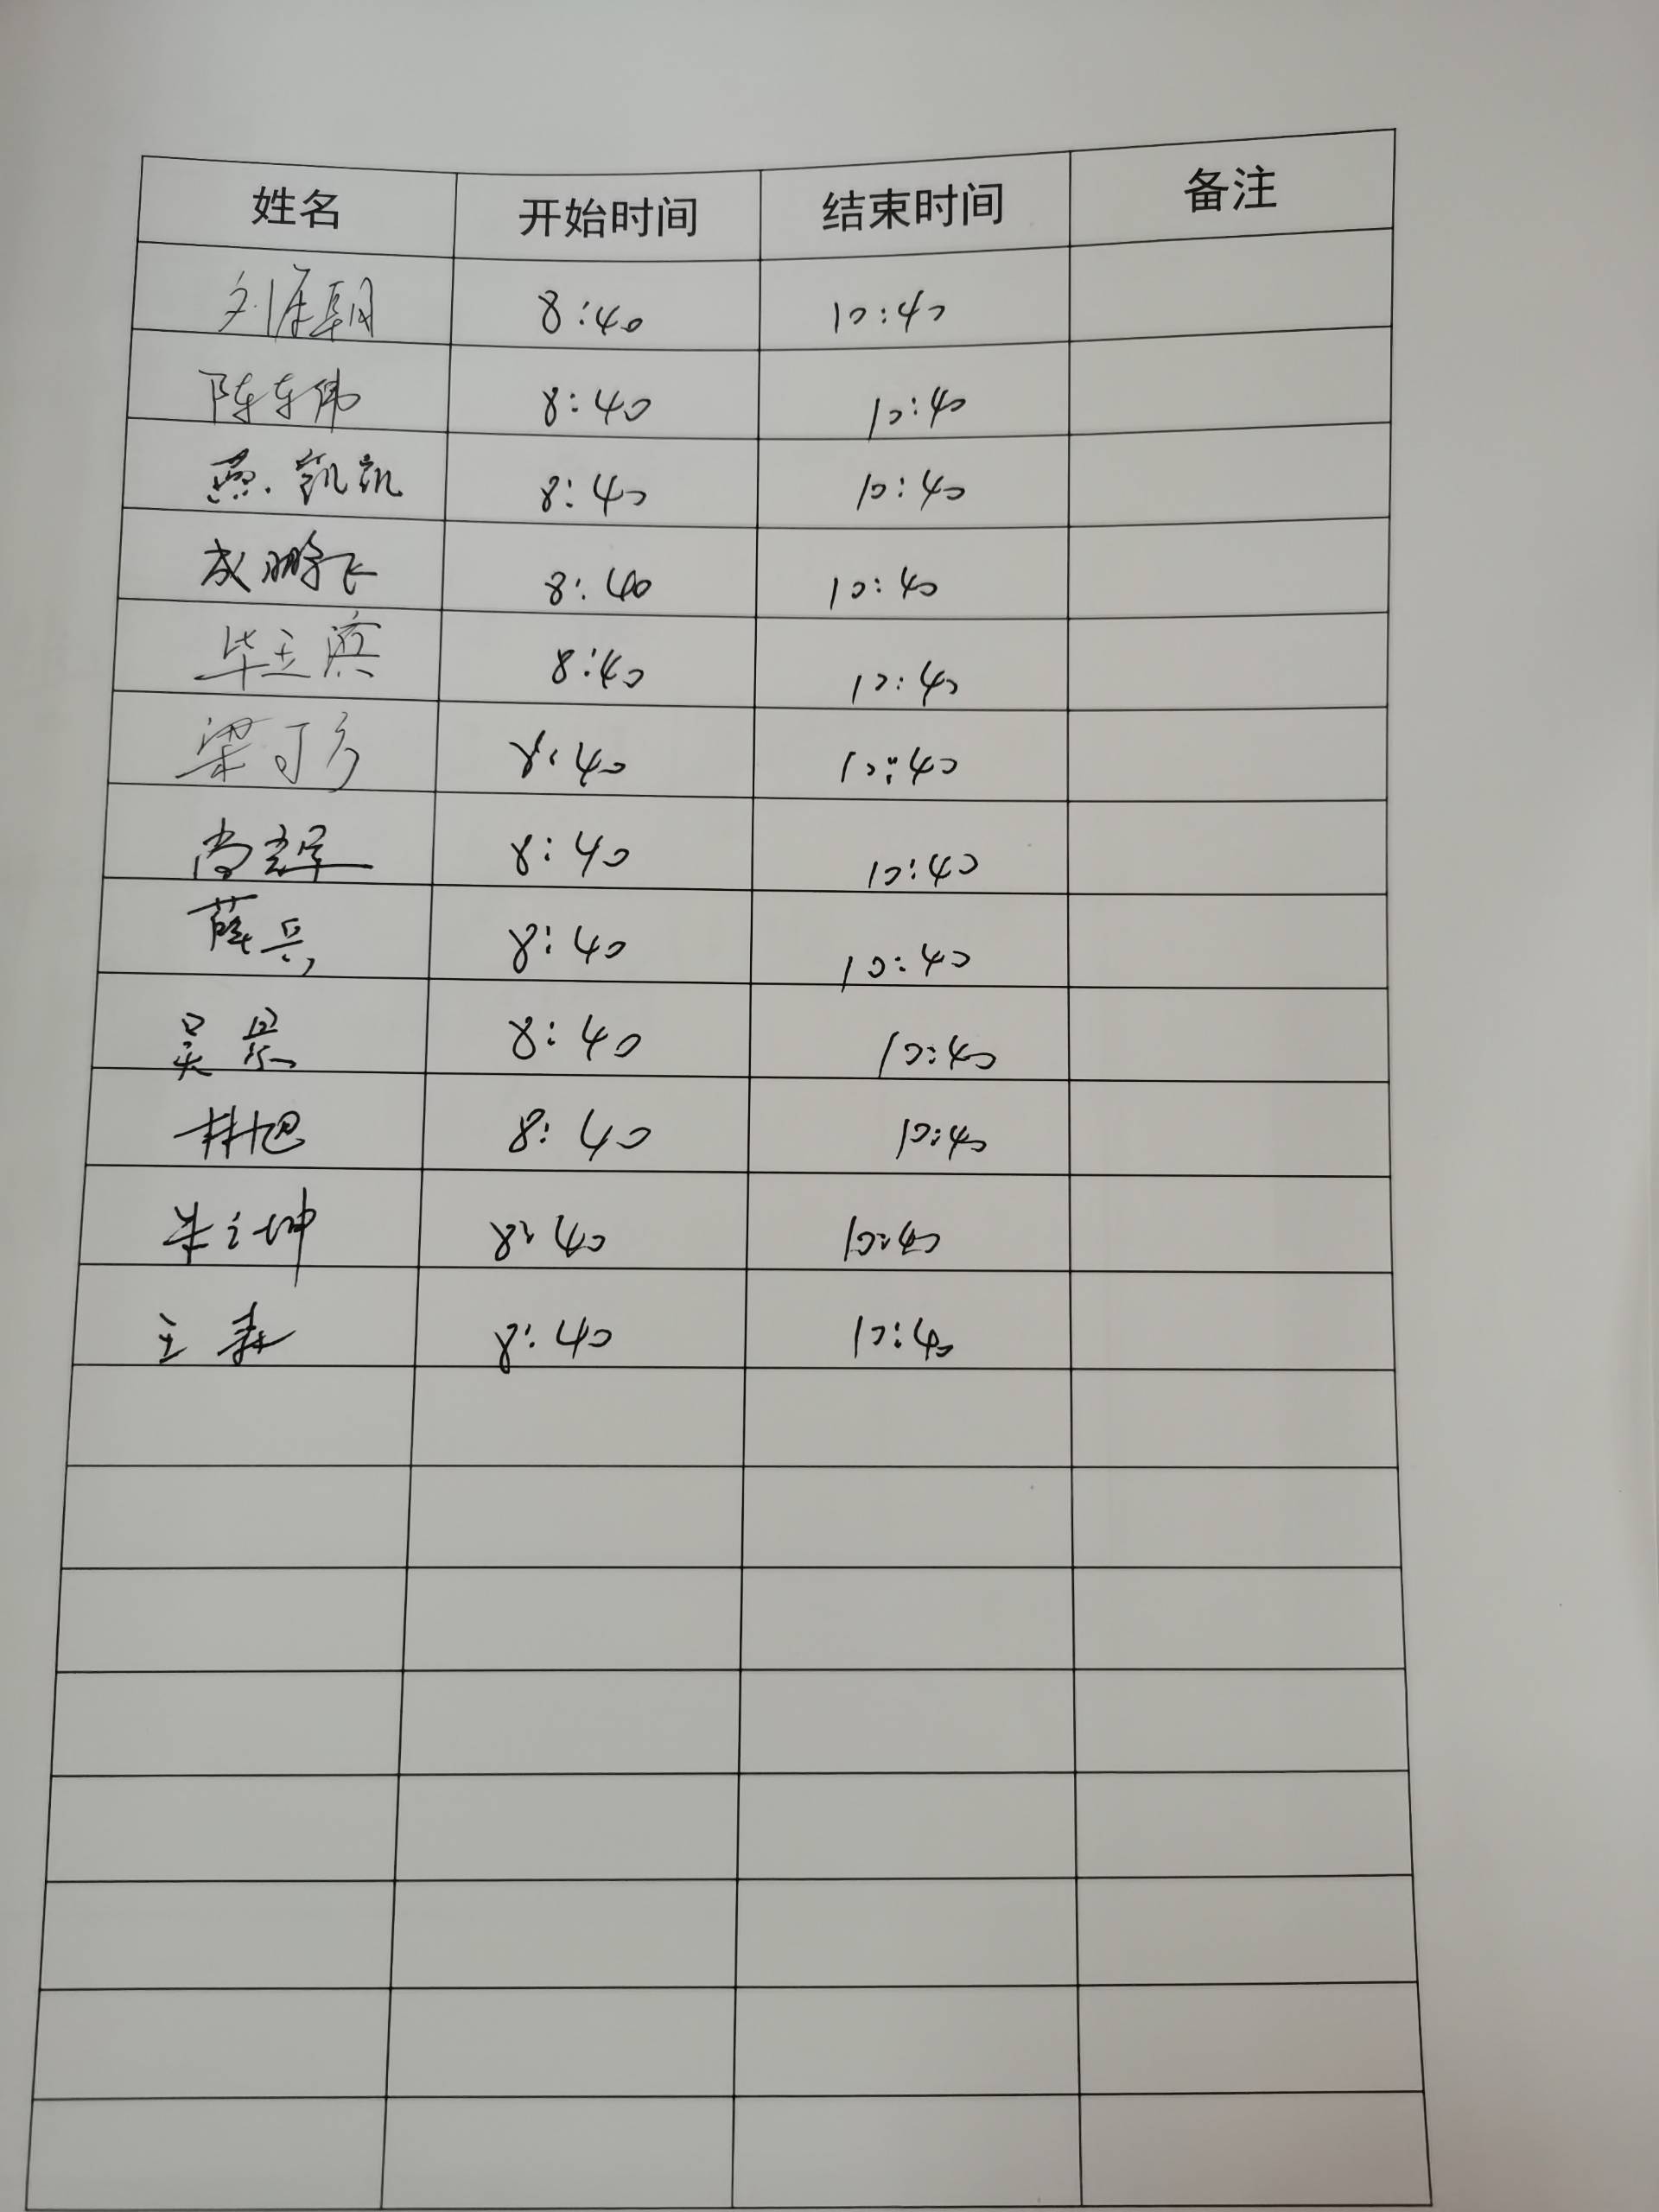 姓名 开始时间 结束时间 备注
刘 朝 8:40 10:40
陈东伟 8:40 10:40
燕凯凯 8:40 10:40
成鹏飞 8:40 10:40
毕玉滨 8:40 10:40
梁 8:40 10:40
尚 8:40 10:40
薛兵 8:40 10:40
吴 8:40 10:40
林旭 8:40 10:40
朱立坤 8:40 10:40
王 8:40 10:40